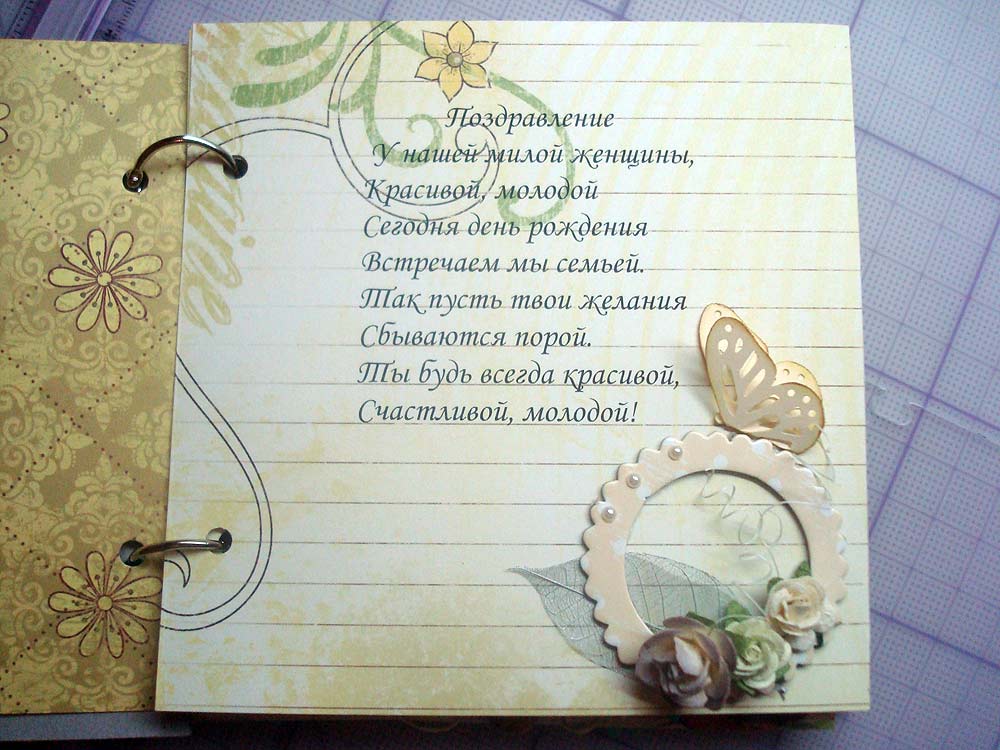 Поздравление
У нашей милой женщины,
Красивой, молодой
Сегодня день рождения
Встречаем мы семьей.
Так пусть твои желания
Сбываются порой.
Ты будь всегда красивой,
Счастливой, молодой!